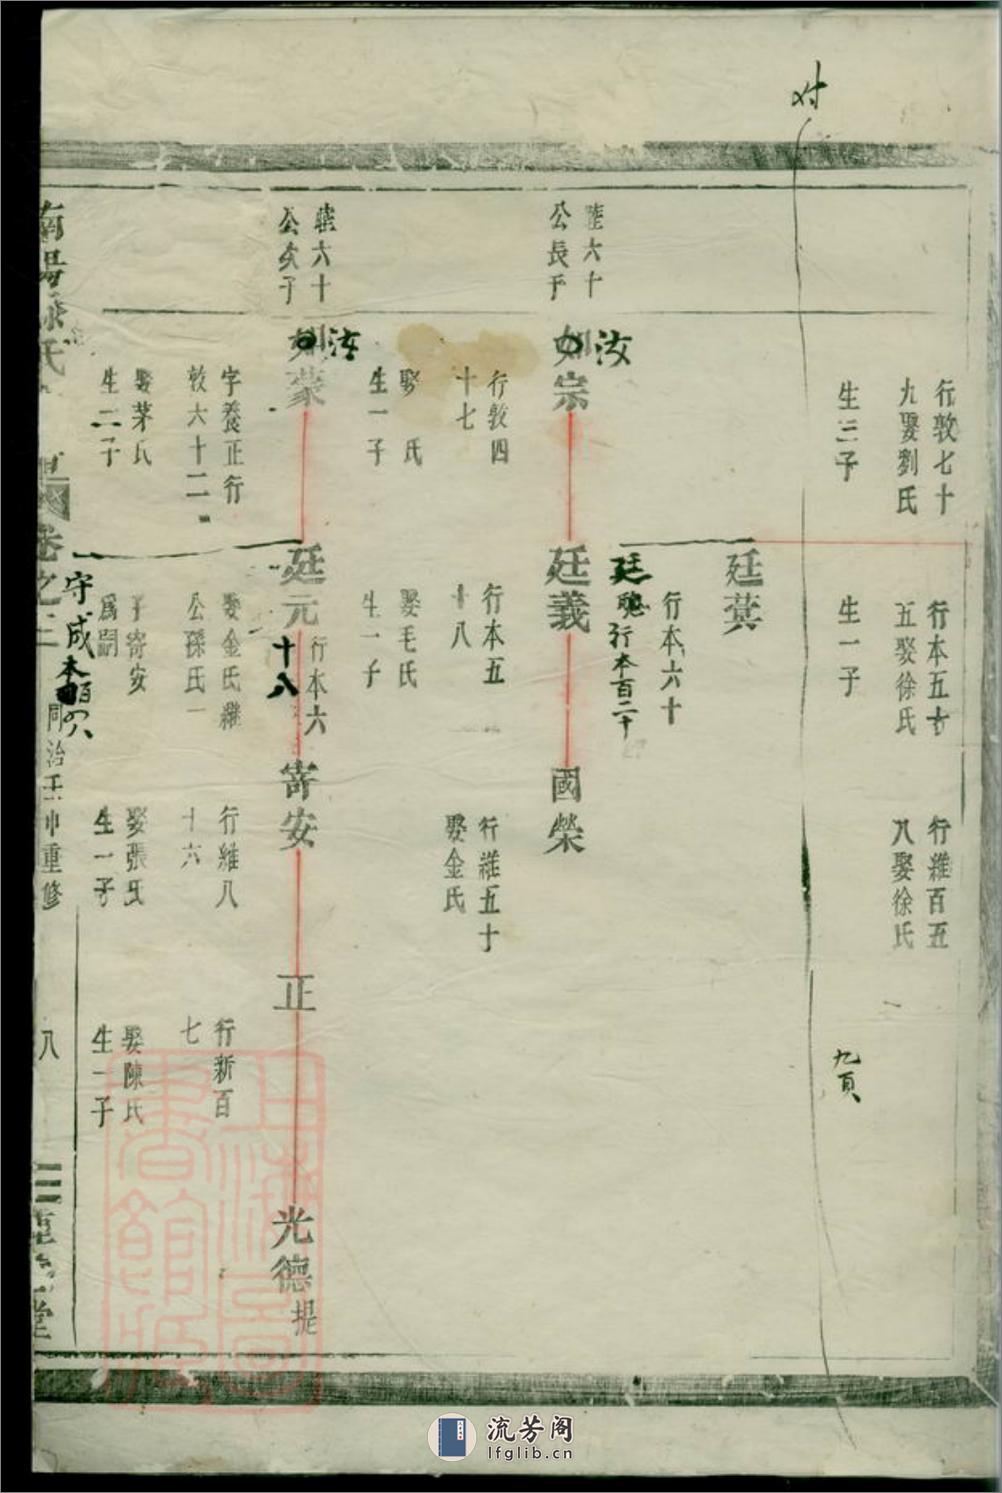 对
行敦七十
九娶劉氏
生三子
行本五十
五娶徐氏
生一子
行維百五
八娶徐氏
九頁
廷蓂
行本六十
廷聰行本百二十
陸六十
公長子
汝
如宗
行敦四
十七
娶 氏
生一子
廷義
行本五
十八
娶毛氏
生一子
國榮
行維五十
娶金氏
陸六十
公次子
汝
如蒙
字養正行
敦六十二
娶茅氏
生二子
廷元
行本六
十八
娶金氏繼
公孫氏一
子寄安
爲嗣
寄安
行維八
十六
娶張氏
生一子
正
行新百
七
娶陳氏
生一子
光德
提
守成
南陽
氏
卷之二
同治壬申重修
八
堂
上海圖書館藏
流芳阁
lfglib.cn